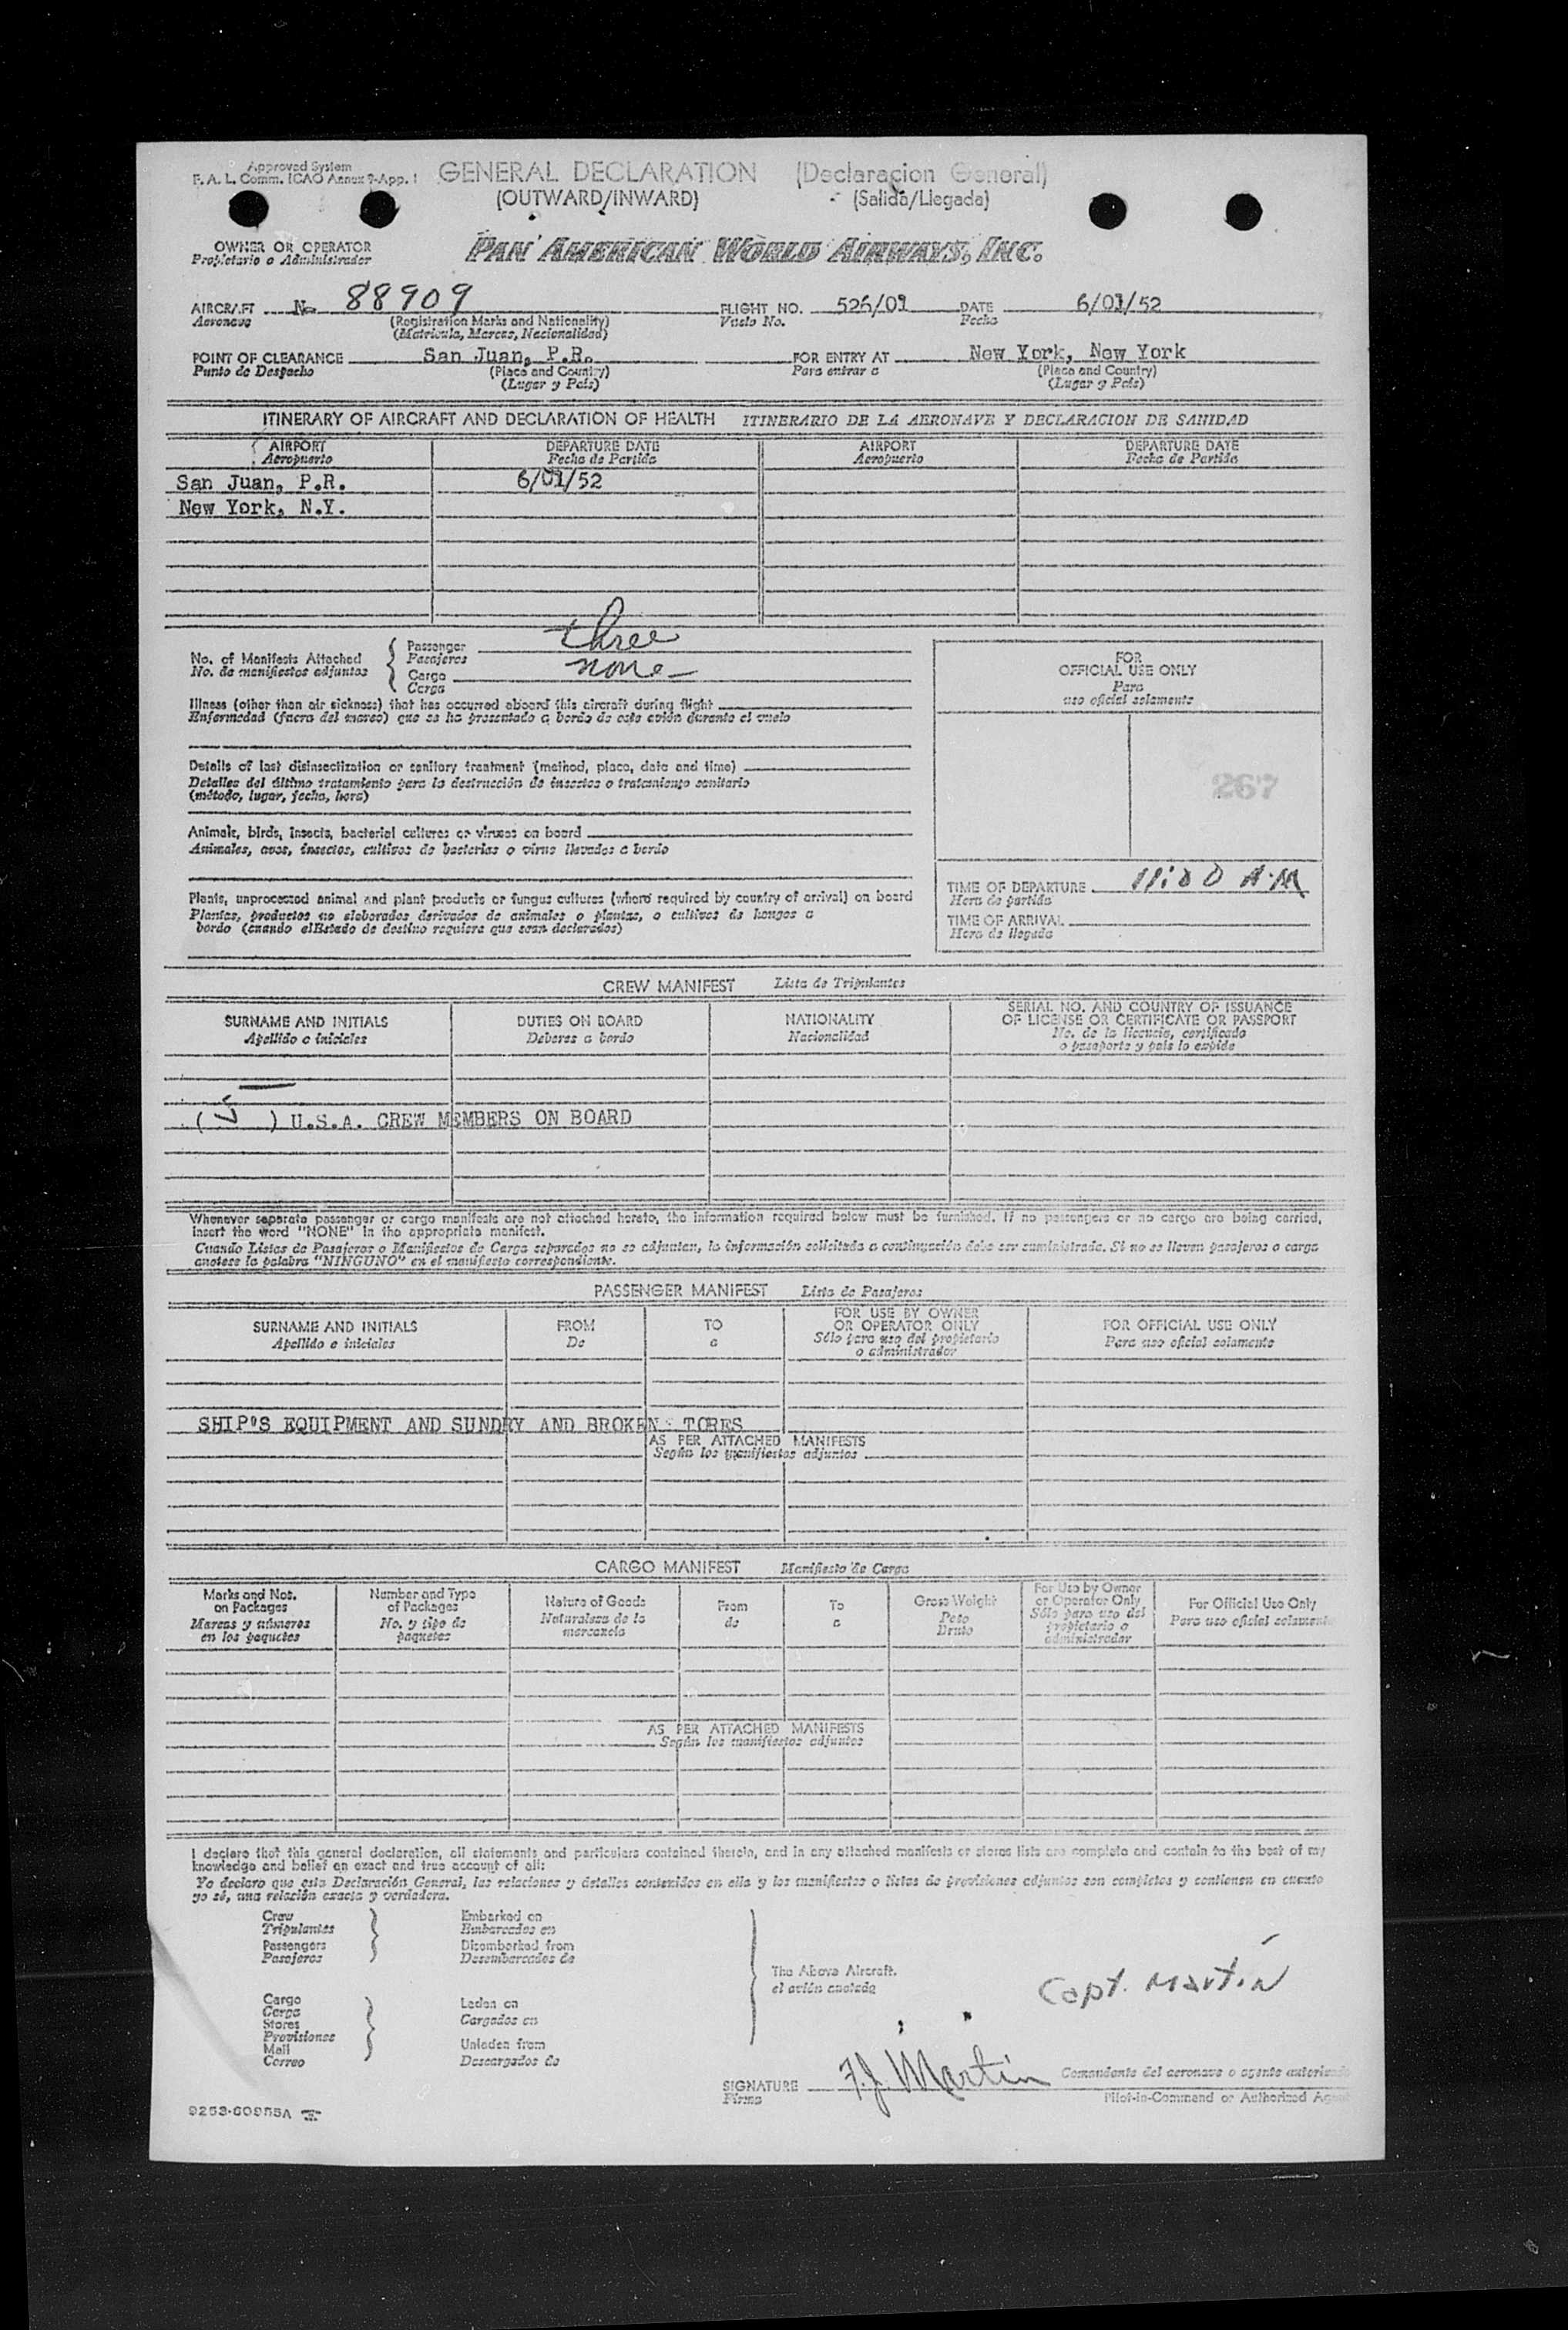 Approved System
F. A. L. Comm. ICAO Annex 9-App. 1
GENERAL DECLARATION (Declaracion General)
(OUTWARD/INWARD) (Salida/Llegada)
OWNER OR OPERATOR
Propietario o Administrador
PAN AMERICAN WORLD AIRWAYS, INC.
AIRCRAFT N 88909 FLIGHT NO. 526/01 DATE 6/01/52
Aeronave (Registration Marks and Nationality) Vuelo No. Fecha
(Matricula, Marcas, Nacionalidad)
POINT OF CLEARANCE San Juan, P.R. FOR ENTRY AT New York, New York
Punto de Despacho (Place and Country) Para entrar a (Place and Country)
(Lugar y País) (Lugar y País)
ITINERARY OF AIRCRAFT AND DECLARATION OF HEALTH ITINERARIO DE LA AERONAVE Y DECLARACION DE SANIDAD
AIRPORT DEPARTURE DATE AIRPORT DEPARTURE DATE
Aeropuerto Fecha de Partida Aeropuerto Fecha de Partida
San Juan, P.R. 6/01/52
New York, N.Y.
No. of Manifests Attached
No. de manifiestos adjuntos
Passenger three
Pasajeros
Cargo none
Carga
Illness (other than air sickness) that has occurred aboard this aircraft during flight
Enfermedad (fuera del mareo) que se ha presentado a bordo de este avión durante el vuelo
Details of last disinsectization or sanitary treatment (method, place, date and time)
Detalles del último tratamiento para la destrucción de insectos o tratamiento sanitario
(método, lugar, fecha, hora)
Animals, birds, insects, bacterial cultures or viruses on board
Animales, aves, insectos, cultivos de bacterias o virus llevados a bordo
Plants, unprocessed animal and plant products or fungus cultures (where required by country of arrival) on board
Plantas, productos no elaborados derivados de animales o plantas, o cultivos de hongos a
bordo (cuando el Estado de destino requiera que sean declarados)
FOR
OFFICIAL USE ONLY
Para
uso oficial solamente
267
TIME OF DEPARTURE 11:00 A.M
Hora de partida
TIME OF ARRIVAL
Hora de llegada
CREW MANIFEST Lista de Tripulantes
SURNAME AND INITIALS DUTIES ON BOARD NATIONALITY SERIAL NO. AND COUNTRY OF ISSUANCE
OF LICENSE OR CERTIFICATE OR PASSPORT
Apellido e iniciales Deberes a bordo Nacionalidad No. de la licencia, certificado
o pasaporte y país lo expide
( 5 ) U.S.A. CREW MEMBERS ON BOARD
Whenever separate passenger or cargo manifests are not attached hereto, the information required below must be furnished. If no passengers or no cargo are being carried,
insert the word "NONE" in the appropriate manifest.
Cuando Listas de Pasajeros o Manifiestos de Carga separados no se adjuntan, la información solicitada a continuación debe ser suministrada. Si no se llevan pasajeros o carga
anotese la palabra "NINGUNO" en el manifiesto correspondiente.
PASSENGER MANIFEST Lista de Pasajeros
SURNAME AND INITIALS FROM TO FOR USE BY OWNER
OR OPERATOR ONLY FOR OFFICIAL USE ONLY
Apellido e iniciales De a Sólo para uso del propietario
o administrador Para uso oficial solamente
SHIP'S EQUIPMENT AND SUNDRY AND BROKEN TORES
AS PER ATTACHED MANIFESTS
Según los manifiestos adjuntos
CARGO MANIFEST Manifiesto de Carga
Marks and Nos.
on Packages
Marcas y números
en los paquetes
Number and Type
of Packages
No. y tipo de
paquetes
Nature of Goods
Naturaleza de la
mercancía
From
de
To
a
Gross Weight
Peso
Bruto
For Use by Owner
or Operator Only
Sólo para uso del
propietario o
administrador
For Official Use Only
Para uso oficial solamente
AS PER ATTACHED MANIFESTS
Según los manifiestos adjuntos
I declare that this general declaration, all statements and particulars contained therein, and in any attached manifests or stores lists are complete and contain to the best of my
knowledge and belief an exact and true account of all:
Yo declaro que esta Declaración General, las relaciones y detalles contenidos en ella y los manifiestos o listas de provisiones adjuntos son completos y contienen en cuanto
yo sé, una relación exacta y verdadera.
Crew
Tripulantes
Passengers
Pasajeros
Embarked on
Embarcados en
Disembarked from
Desembarcados de
Cargo
Carga
Stores
Provisiones
Mail
Correo
Laden on
Cargados en
Unladen from
Descargados de
The Above Aircraft.
el avión anotado
Capt. Martin
SIGNATURE F.J. Martin Comandante del aeronave o agente autorizado
Firma Pilot-in-Command or Authorized Agent
9253-60955A